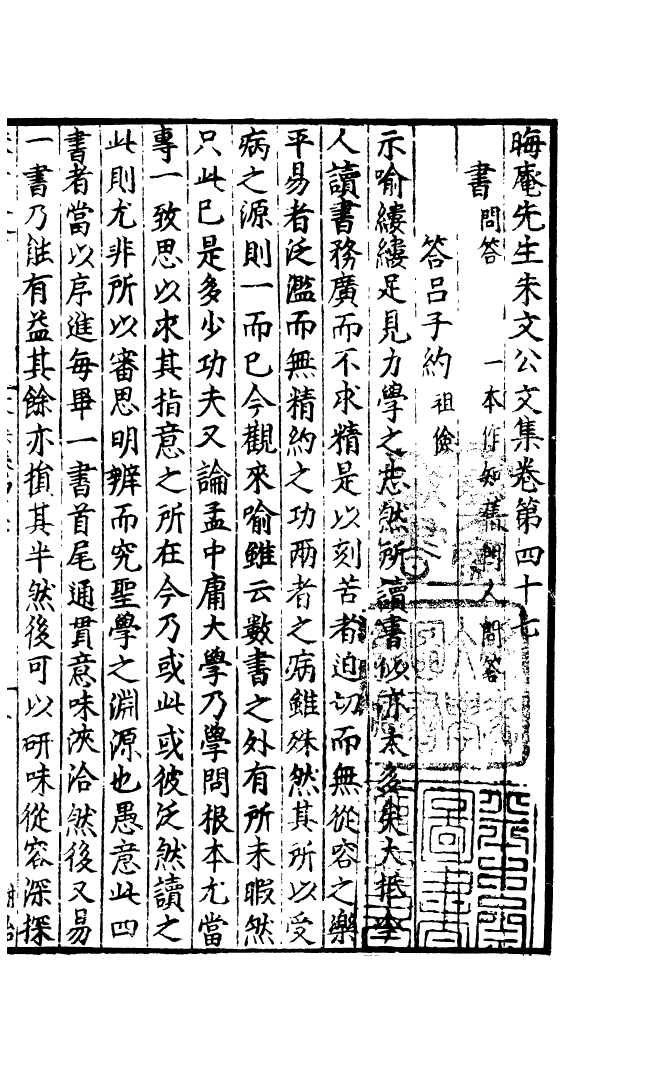 晦庵先生朱文公文集卷第四十七
書問答　一本作知舊門人問答
答吕子約祖儉
示喻縷縷足見力學之志然所讀書似亦太多矣大抵今
人讀書務廣而不求精是以刻苦者迫切而無從容之樂
平易者泛濫而無精約之功兩者之病雖殊然其所以受
病之源則一而已今觀來喻雖云數書之外有所未暇然
只此已是多少功夫又論孟中庸大學乃學問根本尤當
專一致思以求其指意之所在今乃或此或彼泛然讀之
此則尤非所以審思明辨而究聖學之淵源也愚意此四
書者當以序進每畢一書首尾通貫意味浹洽然後又易
一書乃能有益其餘亦損其半然後可以研味從容深探